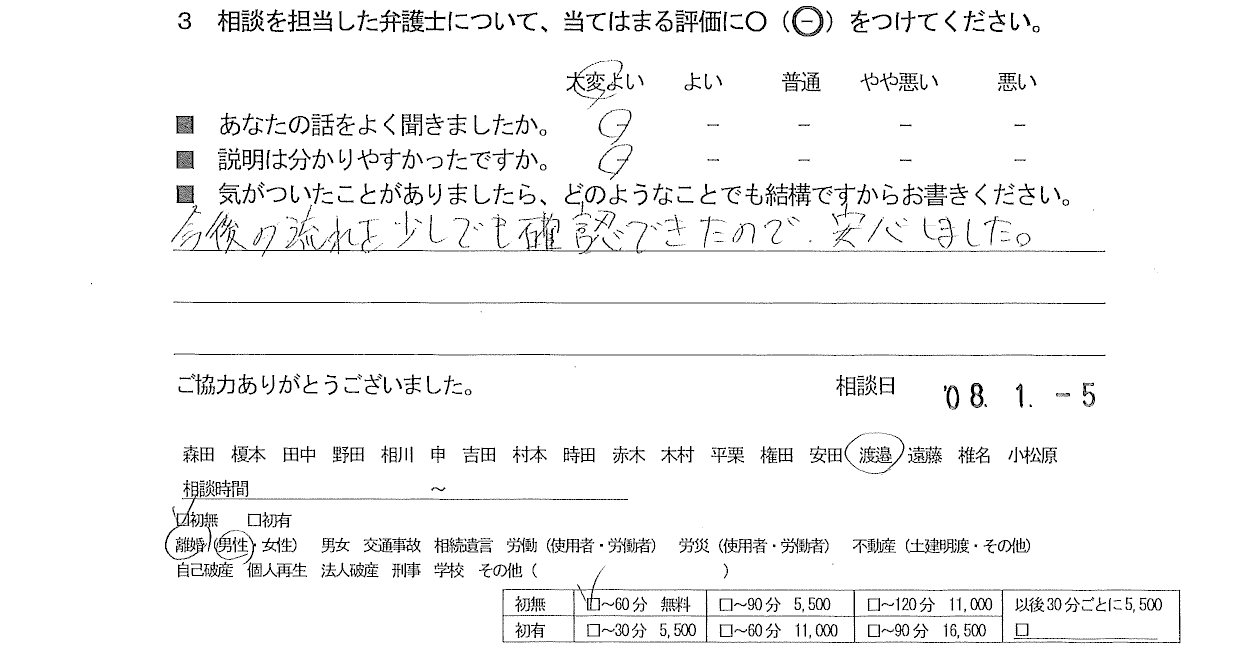 3 相談を担当した弁護士について、当てはまる評価に〇（㊀）をつけてください。
大変よい よい 普通 やや悪い 悪い
■ あなたの話をよく聞きましたか。 － － － － －
■ 説明は分かりやすかったですか。 － － － － －
■ 気がついたことがありましたら、どのようなことでも結構ですからお書きください。
今後の流れを少しでも確認できたので、安心しました。
ご協力ありがとうございました。 相談日 '08. 1. -5
森田 榎本 田中 野田 相川 申 吉田 村本 時田 赤木 木村 平栗 権田 安田 渡邉 遠藤 椎名 小松原
相談時間 ～
□初無 □初有
離婚（男性・女性） 男女 交通事故 相続遺言 労働（使用者・労働者） 労災（使用者・労働者） 不動産（土建明渡・その他）
自己破産 個人再生 法人破産 刑事 学校 その他（ ）
初無 □～60分 無料 □～90分 5,500 □～120分 11,000 以後30分ごとに5,500
初有 □～30分 5,500 □～60分 11,000 □～90分 16,500 □